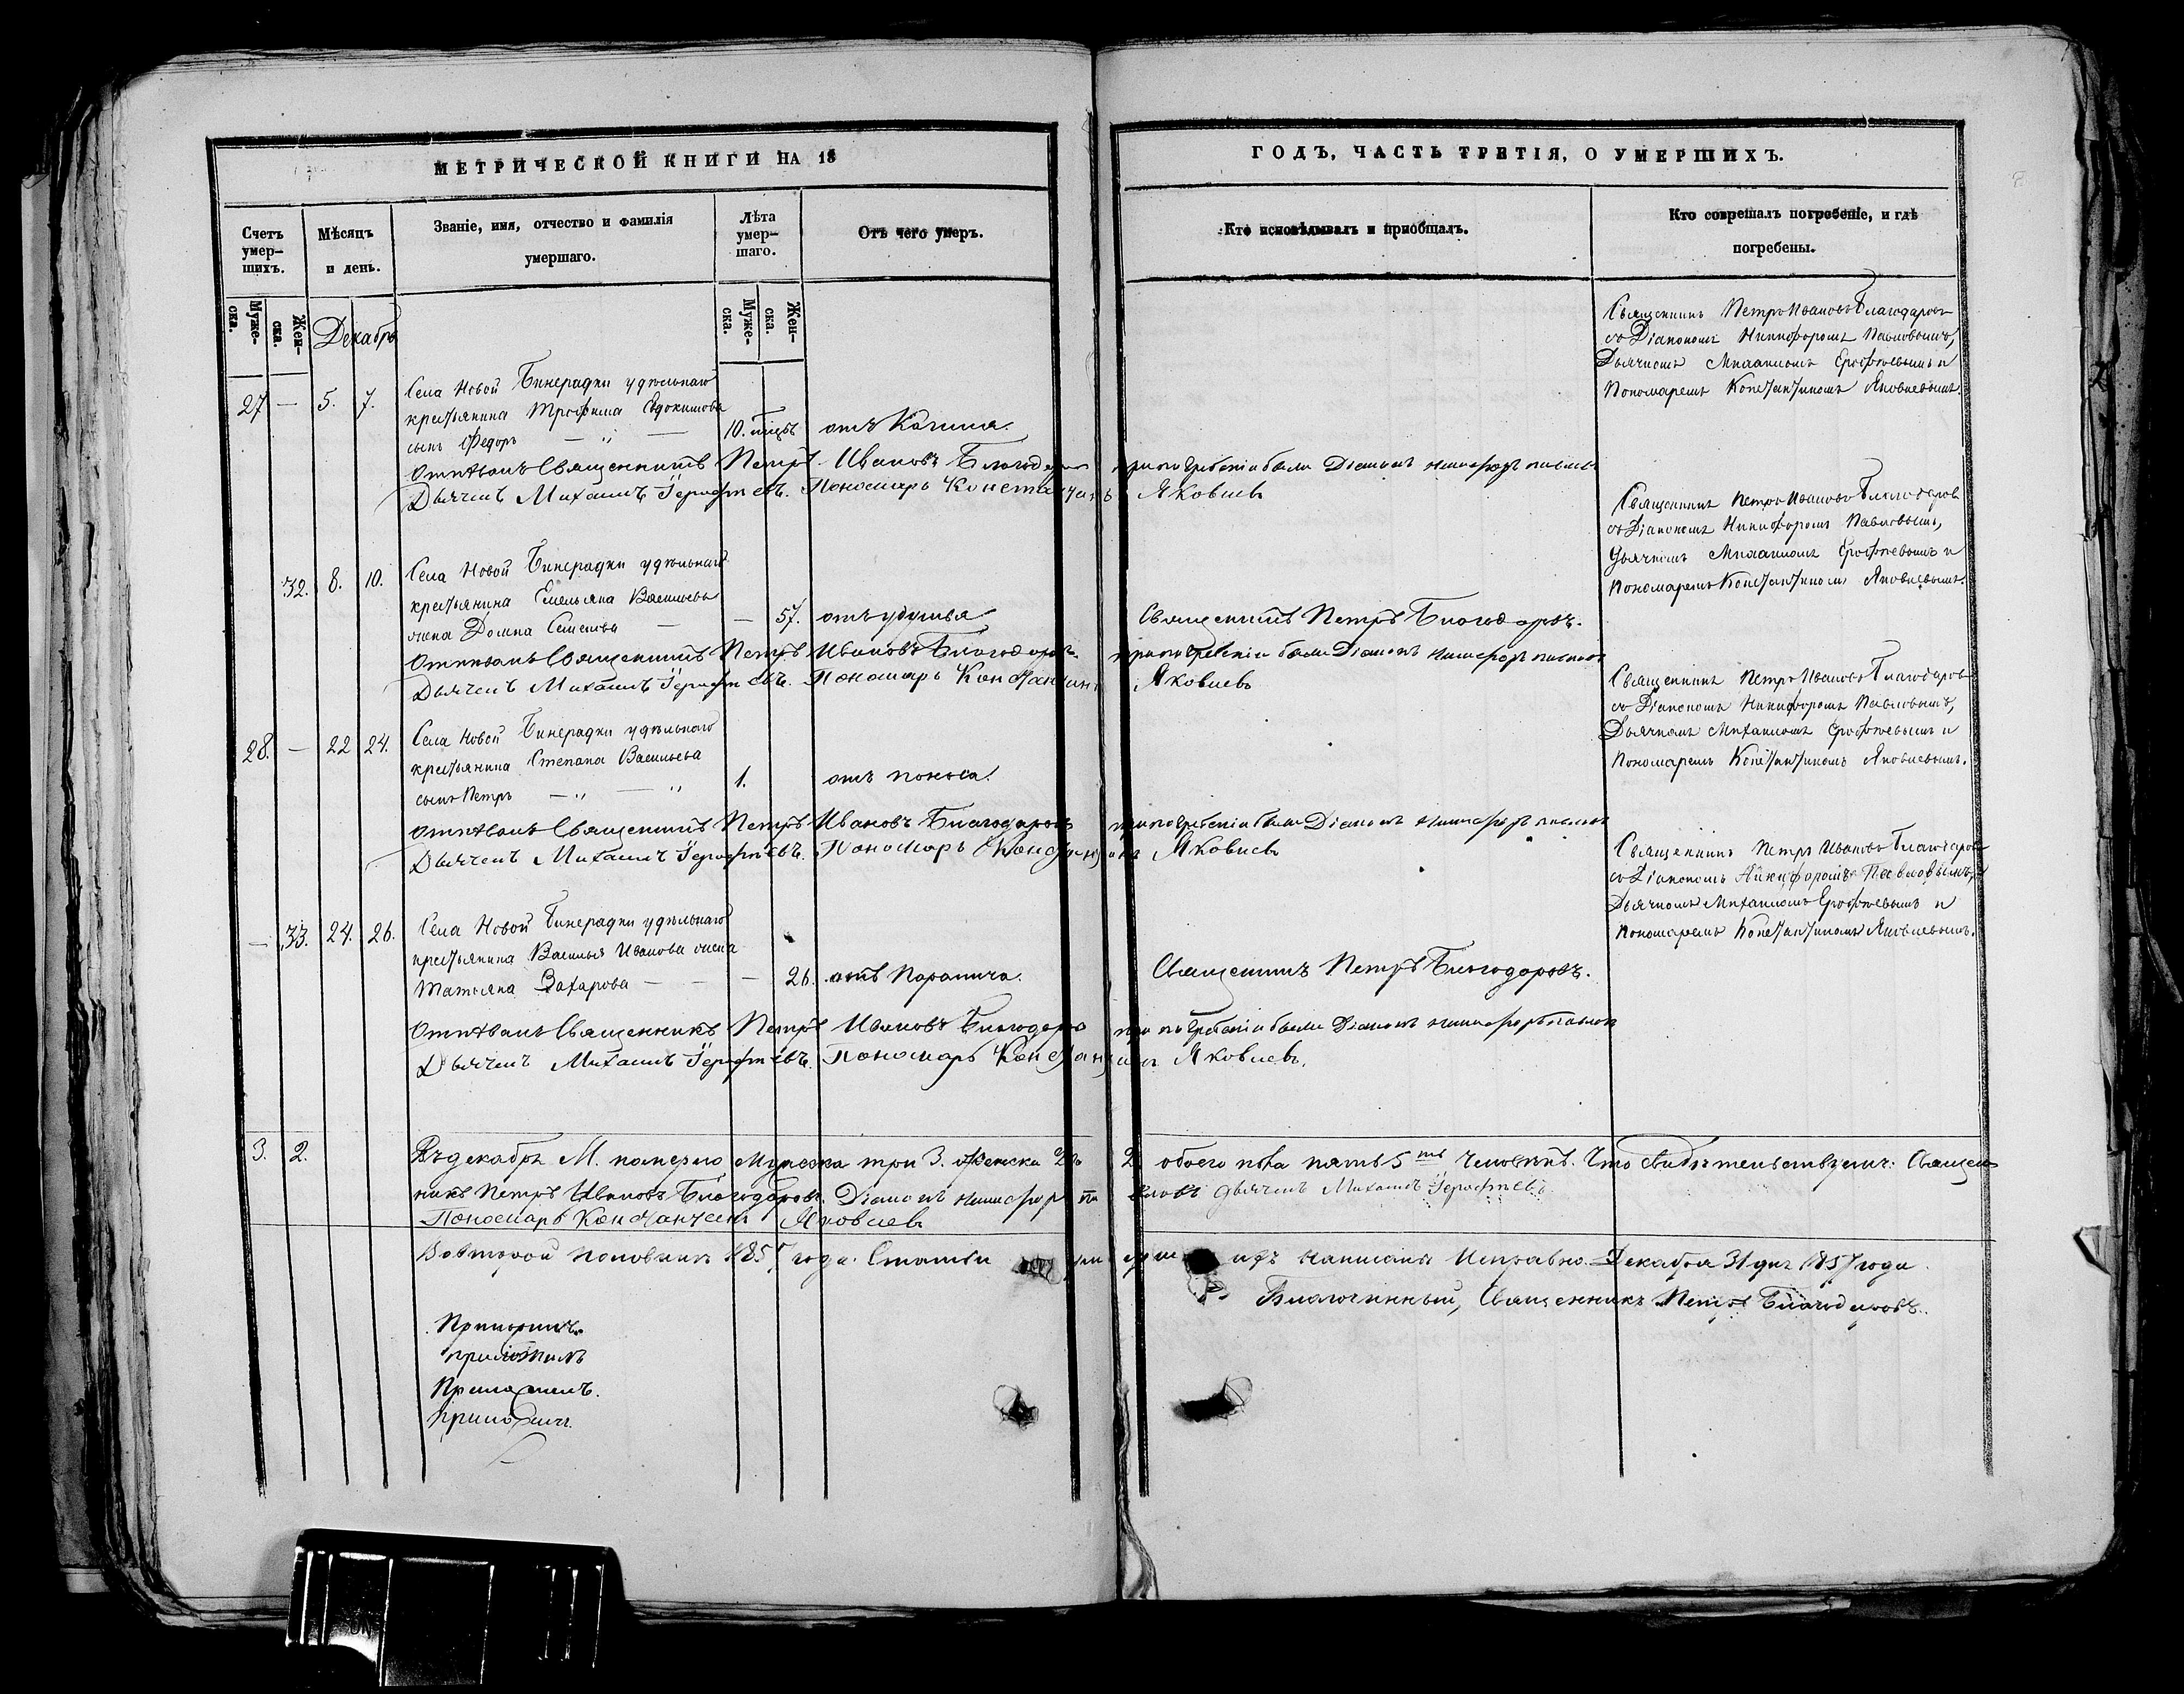 МЕТРИЧЕСКОЙ КНИГИ НА 18
ГОДЪ, ЧАСТЬ ТРЕТІЯ, О УМЕРШИХЪ.
Счетъ умер-шихъ.
Мѣсяцъ и день.
Званіе, имя, отчество и фамилія умершаго.
Лѣта умер-шаго.
Отъ чего умеръ.
Кто исповѣдывалъ и пріобщалъ.
Кто совершалъ погребеніе, и гдѣ погребены.
Муже-ска.
Жен-ска.
Декабрь
Муже-ска.
Жен-ска.
27 — 5. 7.
Села Новой Бинерадки удѣльнаго
крестьянина Трофима Евдокимова
сынъ Федоръ — „ —
10. мцвъ
отъ Кашля.
Священникъ Петръ Ивановъ Благодаровъ
со Діакономъ Никифоромъ Павловымъ,
Дьячкомъ Михаиломъ Ерофѣевымъ и
Пономаремъ Константиномъ Яковлевымъ.
Отпѣвалъ Священникъ Петръ Ивановъ Благодаровъ при погребеніи были Діаконъ Никифоръ Павловъ
Дьячекъ Михаилъ Іерофѣевъ. Пономарь Константинъ Яковлевъ
32. 8. 10.
Села Новой Бинерадки удѣльнаго
крестьянина Емельяна Васильева
жена Домна Семенова —
— 57.
отъ удушья
Священникъ Петръ Благодаровъ.
Священникъ Петръ Ивановъ Благодаровъ
со Діакономъ Никифоромъ Павловымъ,
Дьячкомъ Михаиломъ Ерофѣевымъ и
Пономаремъ Константиномъ Яковлевымъ.
Отпѣвалъ Священникъ Петръ Ивановъ Благодаровъ при погребеніи были Діаконъ Никифоръ Павловъ
Дьячекъ Михаилъ Іерофѣевъ. Пономарь Константинъ Яковлевъ
28. — 22 24.
Села Новой Бинерадки удѣльнаго
крестьянина Степана Васильева
сынъ Петръ — „ — „
1.
отъ поноса.
Священникъ Петръ Ивановъ Благодаровъ
со Діакономъ Никифоромъ Павловымъ,
Дьячкомъ Михаиломъ Ерофѣевымъ и
Пономаремъ Константиномъ Яковлевымъ.
Отпѣвалъ Священникъ Петръ Ивановъ Благодаровъ при погребеніи были Діаконъ Никифоръ Павловъ
Дьячекъ Михаилъ Іерофѣевъ. Пономарь Константинъ Яковлевъ
— 33. 24. 26.
Села Новой Бинерадки удѣльнаго
крестьянина Василья Иванова жена
Татьяна Захарова — —
— 26.
отъ Паралича.
Священникъ Петръ Благодаровъ.
Священникъ Петръ Ивановъ Благодаровъ
со Діакономъ Никифоромъ Павловымъ,
Дьячкомъ Михаиломъ Ерофѣевымъ и
Пономаремъ Константиномъ Яковлевымъ.
Отпѣвалъ Священникъ Петръ Ивановъ Благодаровъ при погребеніи были Діаконъ Никифоръ Павловъ
Дьячекъ Михаилъ Іерофѣевъ. Пономарь Константинъ Яковлевъ.
3. 2. Въ декабрѣ М. померло Мужеска три 3. Женска 2 обоего пола пять 5 человѣкъ. Что свидѣтельствуемъ: Священ
никъ Петръ Ивановъ Благодаровъ. Діаконъ Никифоръ Павловъ дьячекъ Михаилъ Іерофѣевъ
Пономарь Константинъ Яковлевъ
Во второй половинѣ 1857 года. Статьи умершихъ написаны Исправно. Декабря 31 дня 1857 года.
Благочинный, Священникъ Петръ Благодаровъ.